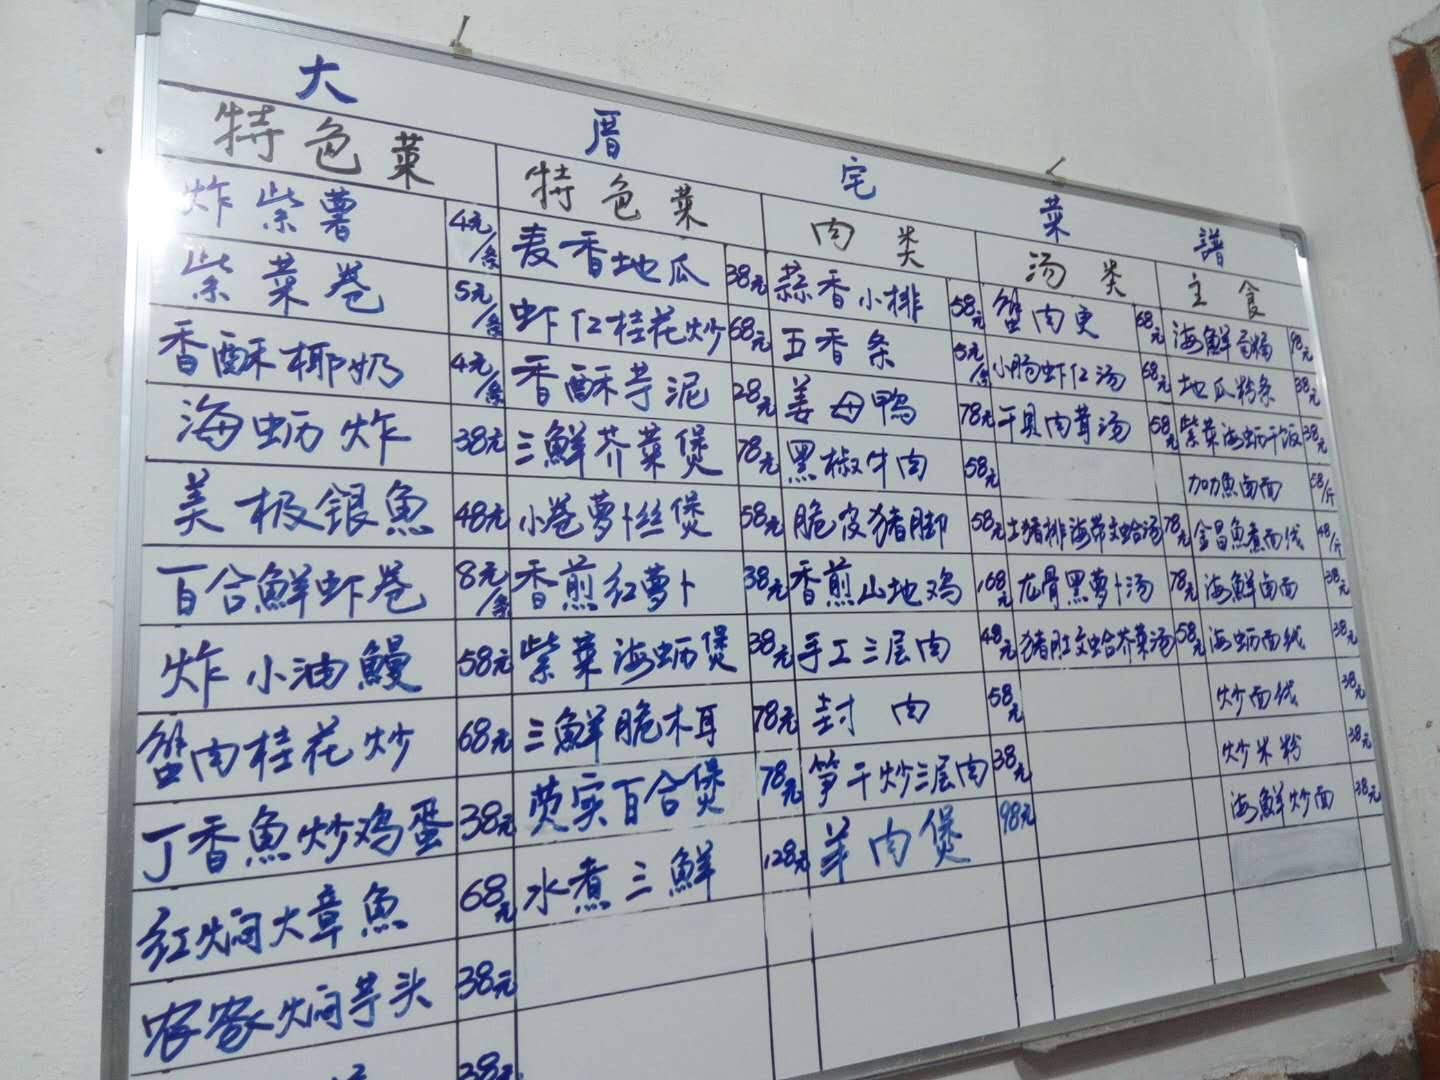 大 厝 宅 菜 譜
特色菜 特色菜 肉类 汤类 主食
炸紫薯 4元/条
紫菜卷 5元/条
香酥椰奶 4元/条
海蛎炸 38元
美极银魚 48元
百合鮮虾卷 8元/条
炸小油鳗 58元
蟹肉桂花炒 68元
丁香魚炒鸡蛋 38元
红焖大章魚 68元
农家焖芋头 38元
38元
麦香地瓜 38元
虾仁桂花炒 68元
香酥芋泥 28元
三鮮芥菜煲 78元
小卷萝卜丝煲 58元
香煎红萝卜 38元
紫菜海蛎煲 38元
三鮮脆木耳 78元
芡实百合煲 78元
水煮三鮮 128元
蒜香小排 58元
五香条 5元/条
姜母鸭 78元
黑椒牛肉 58元
脆皮猪脚 58元
香煎山地鸡 168元
手工三层肉 48元
封肉 58元
笋干炒三层肉 38元
羊肉煲 98元
蟹肉更 68元
小肠虾仁汤 68元
干贝肉茸汤 58元
土猪排海带文蛤汤 78元
龙骨黑萝卜汤 78元
猪肚文蛤芥菜汤 58元
海鮮 98元
地瓜粉条 38元
紫菜海蛎干饭 38元
加力魚卤面 58/斤
金昌魚煮面线 48/斤
海鮮卤面 38元
海蛎面线 38元
炒面线 38元
炒米粉 38元
海鮮炒面 38元